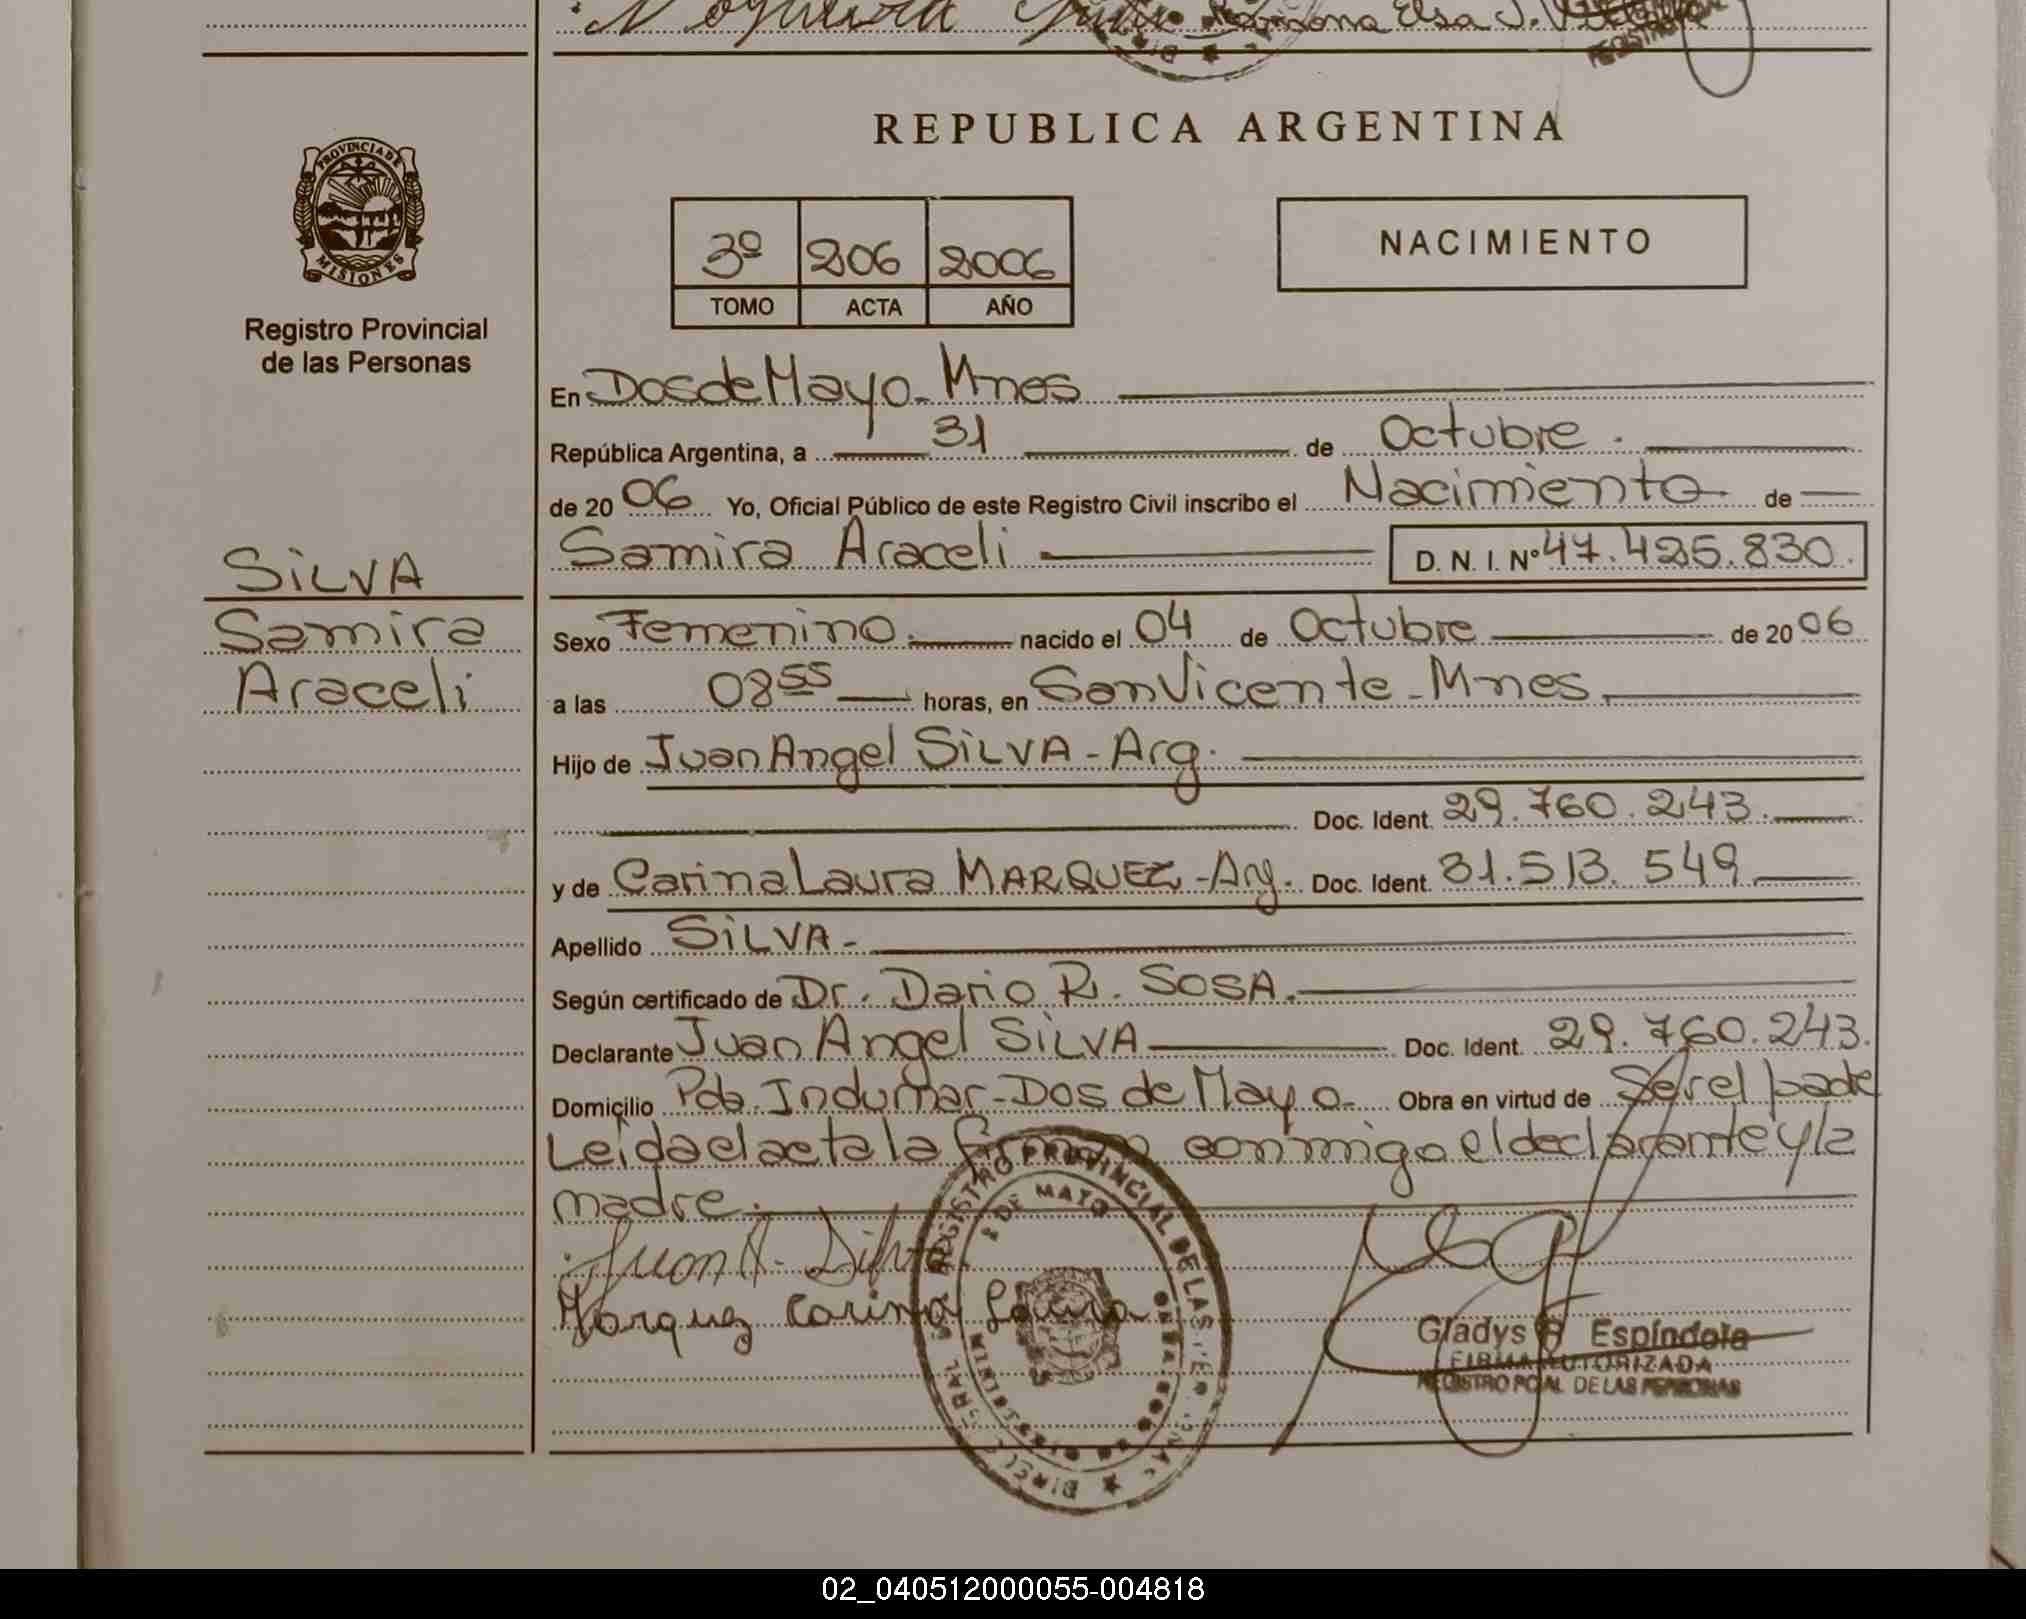 Ramona Elsa J.
REPUBLICA ARGENTINA
PROVINCIA DE
MISIONES
Registro Provincial
de las Personas
3º 206 2006
TOMO ACTA AÑO
NACIMIENTO
En Dos de Mayo - Mnes
República Argentina, a 31 de Octubre.
de 20 06 Yo, Oficial Público de este Registro Civil inscribo el Nacimiento de
Samira Araceli D. N. I. Nº 47.425.830.
SILVA
Samira
Araceli
Sexo Femenino. nacido el 04 de Octubre de 20 06
a las 08 55 horas, en San Vicente - Mnes.
Hijo de Juan Angel SILVA - Arg.
Doc. Ident. 29.760.243.
y de Carina Laura MARQUEZ - Arg. Doc. Ident. 31.513.549
Apellido SILVA -
Según certificado de Dr. Dario R. SOSA.
Declarante Juan Angel SILVA Doc. Ident. 29.760.243.
Domicilio Pda. Indumar - Dos de Mayo - Obra en virtud de Ser el padre
Leida el acta la firman conmigo el declarante y la
madre.
Juan A. Silva
Marquez Carina Laura
REGISTRO PROVINCIAL DE LAS
2 DE MAYO
Gladys Espíndola
FIRMA AUTORIZADA
REGISTRO PCIAL DE LAS PERSONAS
02_040512000055-004818